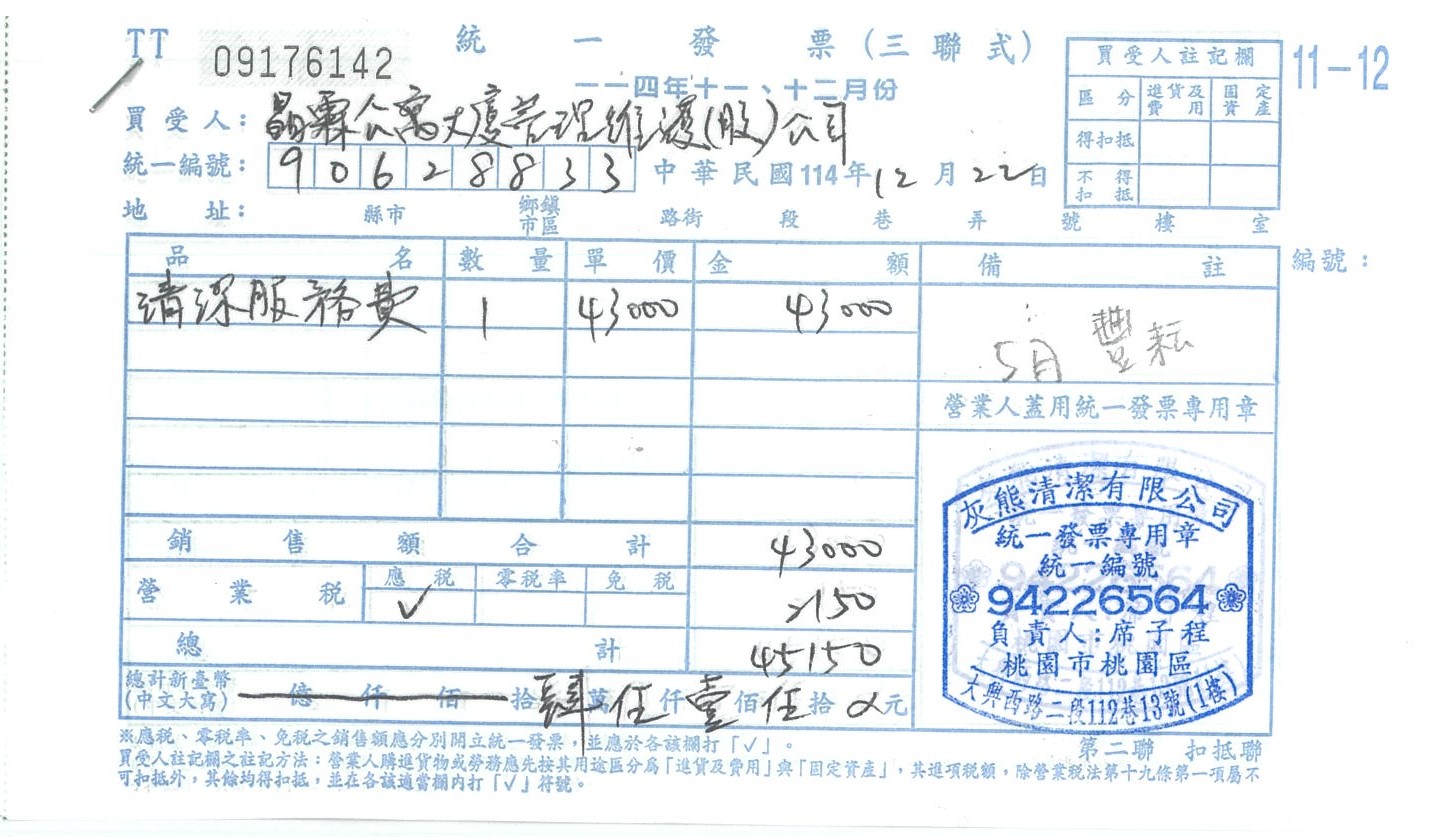 TT 09176142 統一發票(三聯式) 11-12
一一四年十一、十二月份
買受人: 晶霖公寓大廈管理維護(股)公司
統一編號: 90628833 中華民國114年12月22日
地址: 縣市 鄉鎮市區 路街 段 巷 弄 號 樓 室
買受人註記欄
區分 進貨及費用 固定資產
得扣抵
不得扣抵
品名 數量 單價 金額 備註 編號:
清潔服務費 1 43000 43000
5月 豐耘
營業人蓋用統一發票專用章
銷售額合計 43000
營業稅 應稅 ✓ 零稅率 免稅 2150
總計 45150
總計新臺幣(中文大寫) 億仟佰拾肆萬伍仟壹佰伍拾0元
灰熊清潔有限公司
統一發票專用章
統一編號
94226564
負責人:席子程
桃園市桃園區
大興西路二段112巷13號(1樓)
※應稅、零稅率、免稅之銷售額應分別開立統一發票,並應於各該欄打「✓」。
第二聯 扣抵聯
買受人註記欄之註記方法:營業人購進貨物或勞務應先按其用途區分為「進貨及費用」與「固定資產」,其進項稅額,除營業稅法第十九條第一項屬不
可扣抵外,其餘均得扣抵,並在各該適當欄內打「✓」符號。